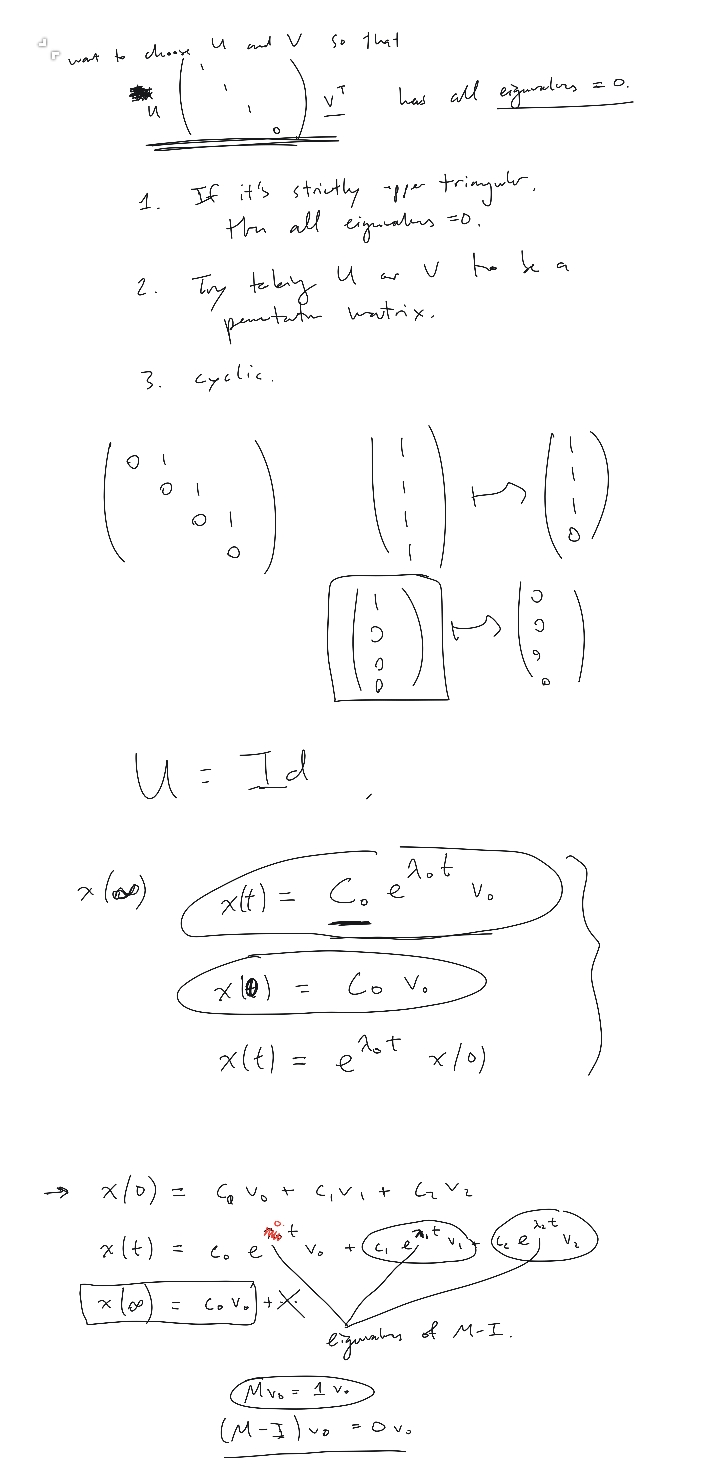 want to choose U and V so that
U ( 1 1 1 0 ) V^T has all eigenvalues = 0.
1. If it's strictly upper triangular,
then all eigenvalues = 0.
2. Try taking U or V to be a
permutation matrix.
3. cyclic.
( 0 1 ( 1 ( 1
0 1 1 1
0 1 1 ↦ 1
0 ) 1 ) 0 )
( 1 0 0 0 ) ↦ ( 0 0 0 0 )
U = Id ,
x(∞) x(t) = C₀ e^{λ₀t} v₀
x(0) = C₀ v₀
x(t) = e^{λ₀t} x(0)
→ x(0) = c₀ v₀ + c₁ v₁ + c₂ v₂
x(t) = c₀ e^{0·t} v₀ + c₁ e^{λ₁t} v₁ + c₂ e^{λ₂t} v₂
x(∞) = c₀ v₀ +
eigenvalues of M-I.
Mv₀ = 1 v₀
(M-I) v₀ = 0 v₀